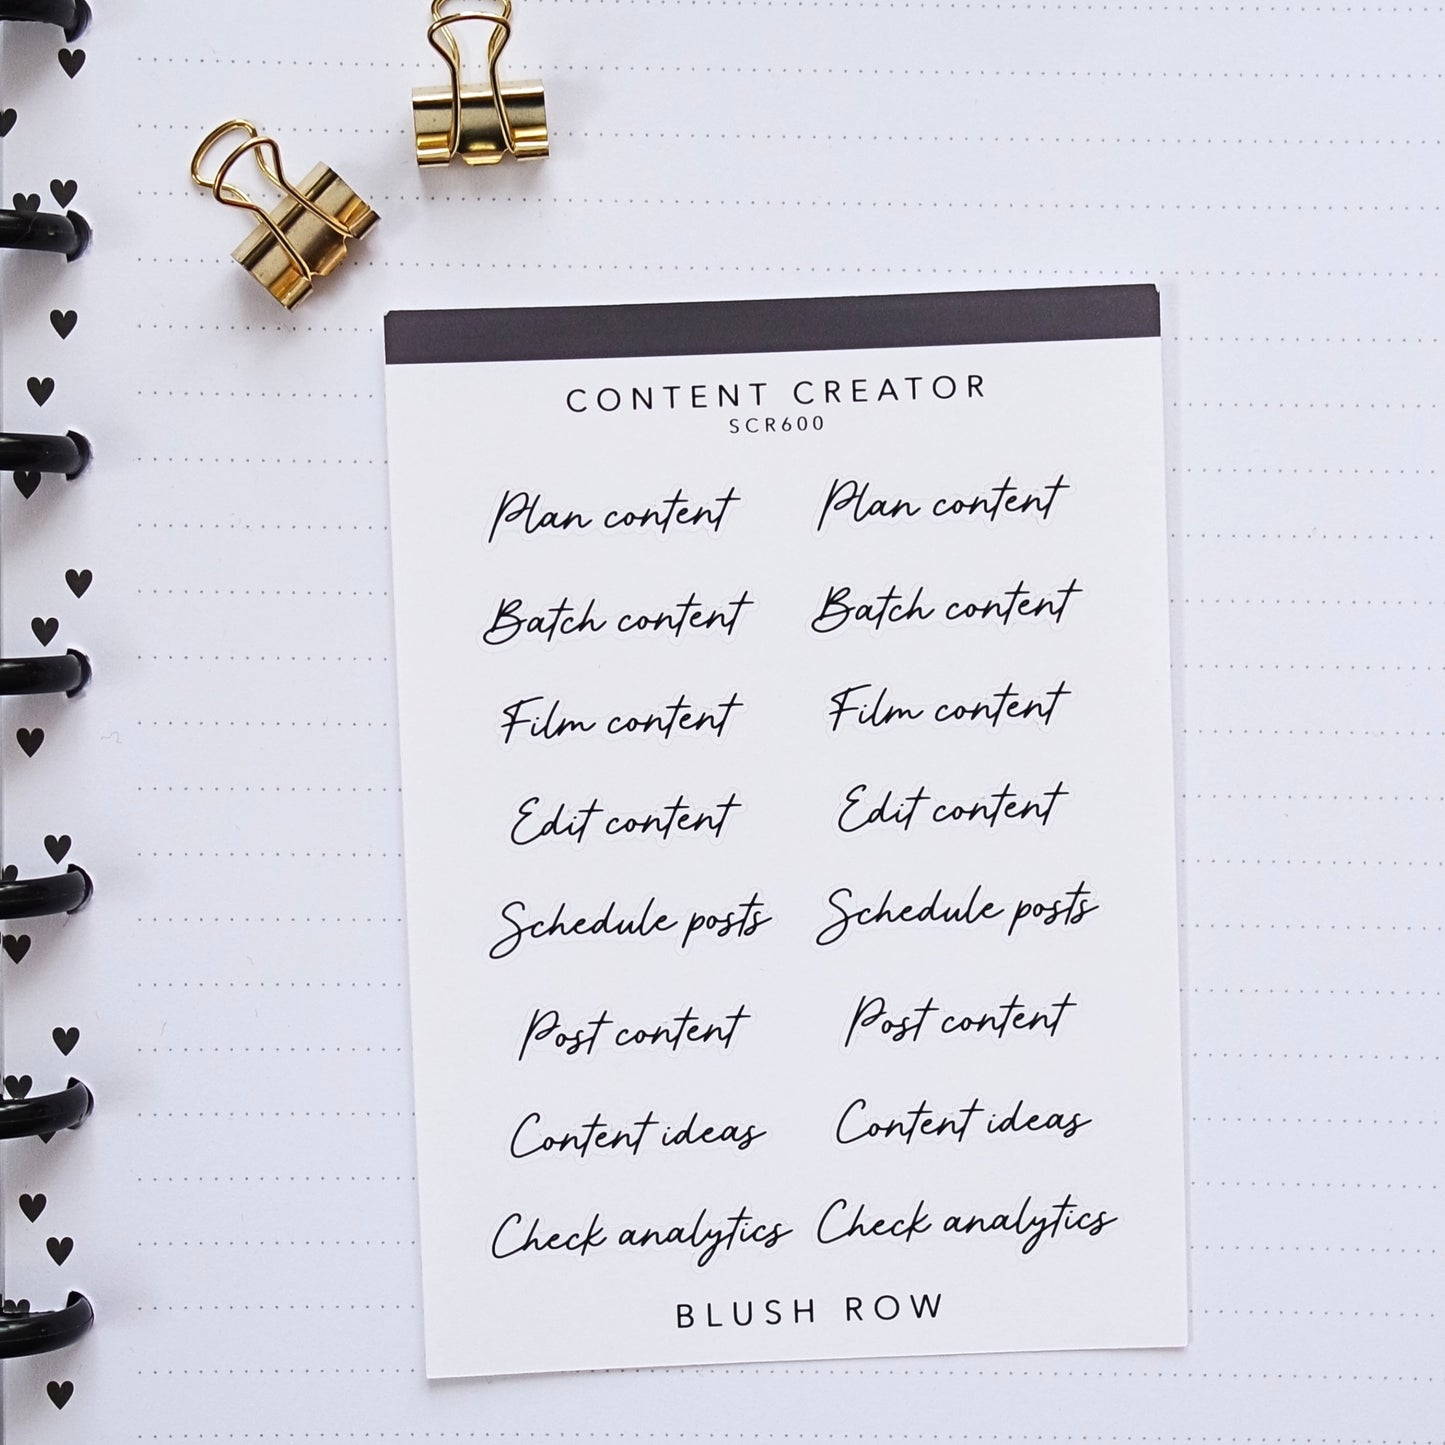 CONTENT CREATOR
SCR600
Plan content Plan content
Batch content Batch content
Film content Film content
Edit content Edit content
Schedule posts Schedule posts
Post content Post content
Content ideas Content ideas
Check analytics Check analytics
BLUSH ROW